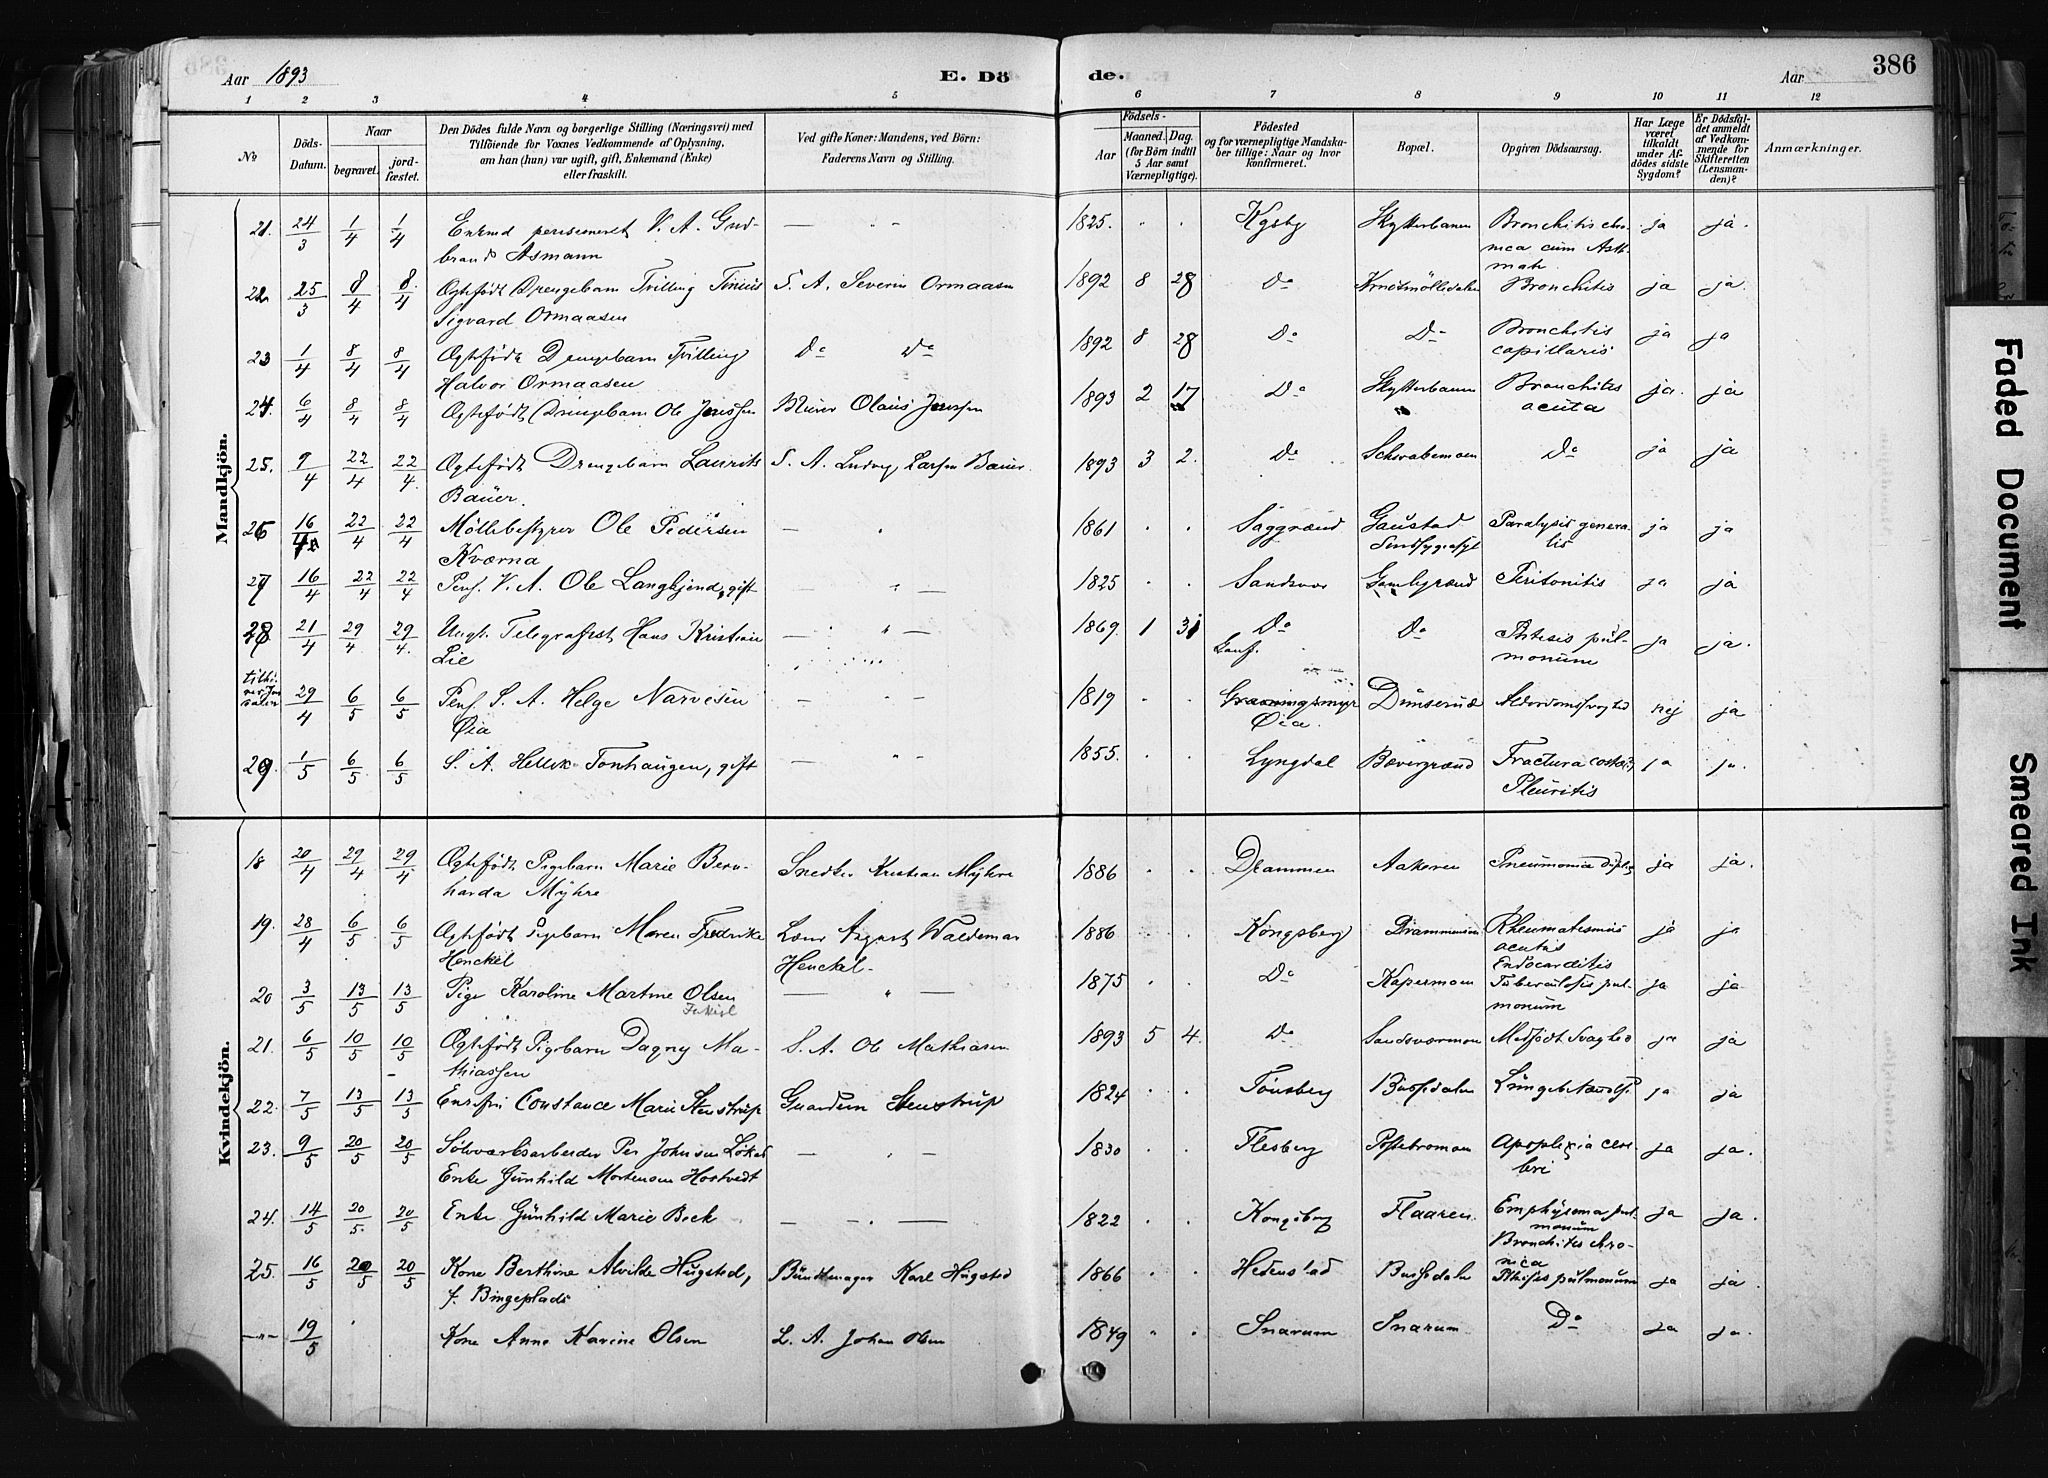 Aar 1893
E. Dö
de.
Aar
386
1 2 3 4 5 6 7 8 9 10 11 12
No
Döds-
Datum.
Naar
begravet.
jord-
fæstet.
Den Dödes fulde Navn og borgerlige Stilling (Næringsvei) med
Tilföiende for Voxnes Vedkommende af Oplysning,
om han (hun) var ugift, gift, Enkemand (Enke)
eller fraskilt.
Ved gifte Koner: Mandens, ved Börn:
Faderens Navn og Stilling.
Födsels-
Aar
Maaned. Dag.
(for Börn indtil
5 Aar samt
Værnepligtige).
Födested
og for værnepligtige Mandska-
ber tillige: Naar og hvor
konfirmeret.
Bopæl.
Opgiven Dödsaarsag.
Har Læge
været
tilkaldt
under Af-
dödes sidste
Sygdom?
Er Dödsfal-
det anmeldt
af Vedkom-
mende for
Skifteretten
(Lensman-
den)?
Anmærkninger.
Mandkjön.
21. 24/3 1/4 1/4 Enkmd pensioneret V. A. Gud- — " - 1825. Kgsbg Skytterbanen Bronchitis chro- ja ja.
brand Asmann nica cum Asth-
mate
22 25/3 8/4 8/4 Ægtefödt Drengebarn Tvilling Tinius S. A. Severin Ormaasen 1892 8 28 Do Bronchitis ja ja.
Sigvard Ormaasen
23 1/4 8/4 8/4 Ægtefödt Drengebarn Tvilling Do Do 1892 8 28 Do Do Bronchitis ja ja
Halvor Ormaasen capillaris
24 6/4 8/4 8/4 Ægtefödt Drengebarn Ole Jenssen Murer Olaus Jenssen 1893 2 17 Do Skytterbanen Bronchitis ja. ja
acuta
25. 9/4 22/4 22/4 Ægtefödt Drengebarn Laurits S. A. Ludvig Larsen Bauer 1893 3 2. Do Schwabemoen Do ja ja
Bauer
26 16/4 22/4 22/4 Möllebestyrer Ole Pedersen — " 1861 Saggrænd Gaustad Paralysis genera- ja ja
Kværna Sindsygeasyl lis
27 16/4 22/4 22/4 Pens. V. A. Ole Langkjend, gift — " — 1825 Sandsvær Gamlegrænd Peritonitis ja ja
28 21/4 29/4 29/4 Ungk. Telegrafist Hans Kristian — " — 1869. 1 31 Do Do Phtisis pul- ja ja.
Lie monum
29/4 6/5 6/5 Pens. S. A. Helge Narvesen — " - 1819 Dunserud Alderdomssvaghed nej ja
Øia Øia.
29. 1/5 6/5 6/5 S. A. Hellik Tonhaugen, gift — " - 1855. Lyngdal Bævergrænd Fractura costa ja ja.
Pleuritis
Kvindekjön.
18 20/4 29/4 29/4 Ægtefödt Pigebarn Marie Bern- Snedker Kristian Myhre 1886 Drammen Aakeren Pneumonia dupl. ja ja.
harda Myhre
19. 28/4 6/5 6/5 Ægtefödt Pigebarn Maren Fredrike August Waldemar 1886 Kongsberg Rheumatismus ja ja
Henckel Henckel. acutus
Endocarditis
20 3/5 13/5 13/5 Pige Karoline Martine Olsen — " — 1875 Do Kapermoen Tuberculosis pul- ja ja
monum
21. 6/5 10/5 10/5 Ægtefödt Pigebarn Dagny Ma- S. A. Ole Mathiasen 1893 5 4. Do Sandsværmoen Medfödt Svaghed ja ja
thiassen
22. 7/5 13/5 13/5 Enkefru Constance Marie Stenstrup Guardein Stenstrup 1824 Tönsberg Bussedalen Lungebetændelse ja ja
23. 9/5 20/5 20/5 Sölvværksarbeider Per Johnsen Lökens — " — 1830 Flesberg Apoplexia cere- ja ja.
Enke Gunhild Mortensen Hostvedt bri
24. 14/5 20/5 20/5 Enke Gunhild Marie Beck — " — 1822 Kongsberg Flaaren Emphysema pul- ja ja.
monum
Bronchitis chro-
nica
25. 16/5 20/5 20/5 Kone Berthine Alvilde Hugsted, Buntmager Karl Hugsted 1866 Hedenstad Bussedalen Phtisis pulmonum ja ja.
f. Bingeplads
—"— 19/5 Kone Anne Karine Olsen L. A. Johan Olsen 1849 Snarum Snarum Do ja ja.
Faded Document
Smeared Ink